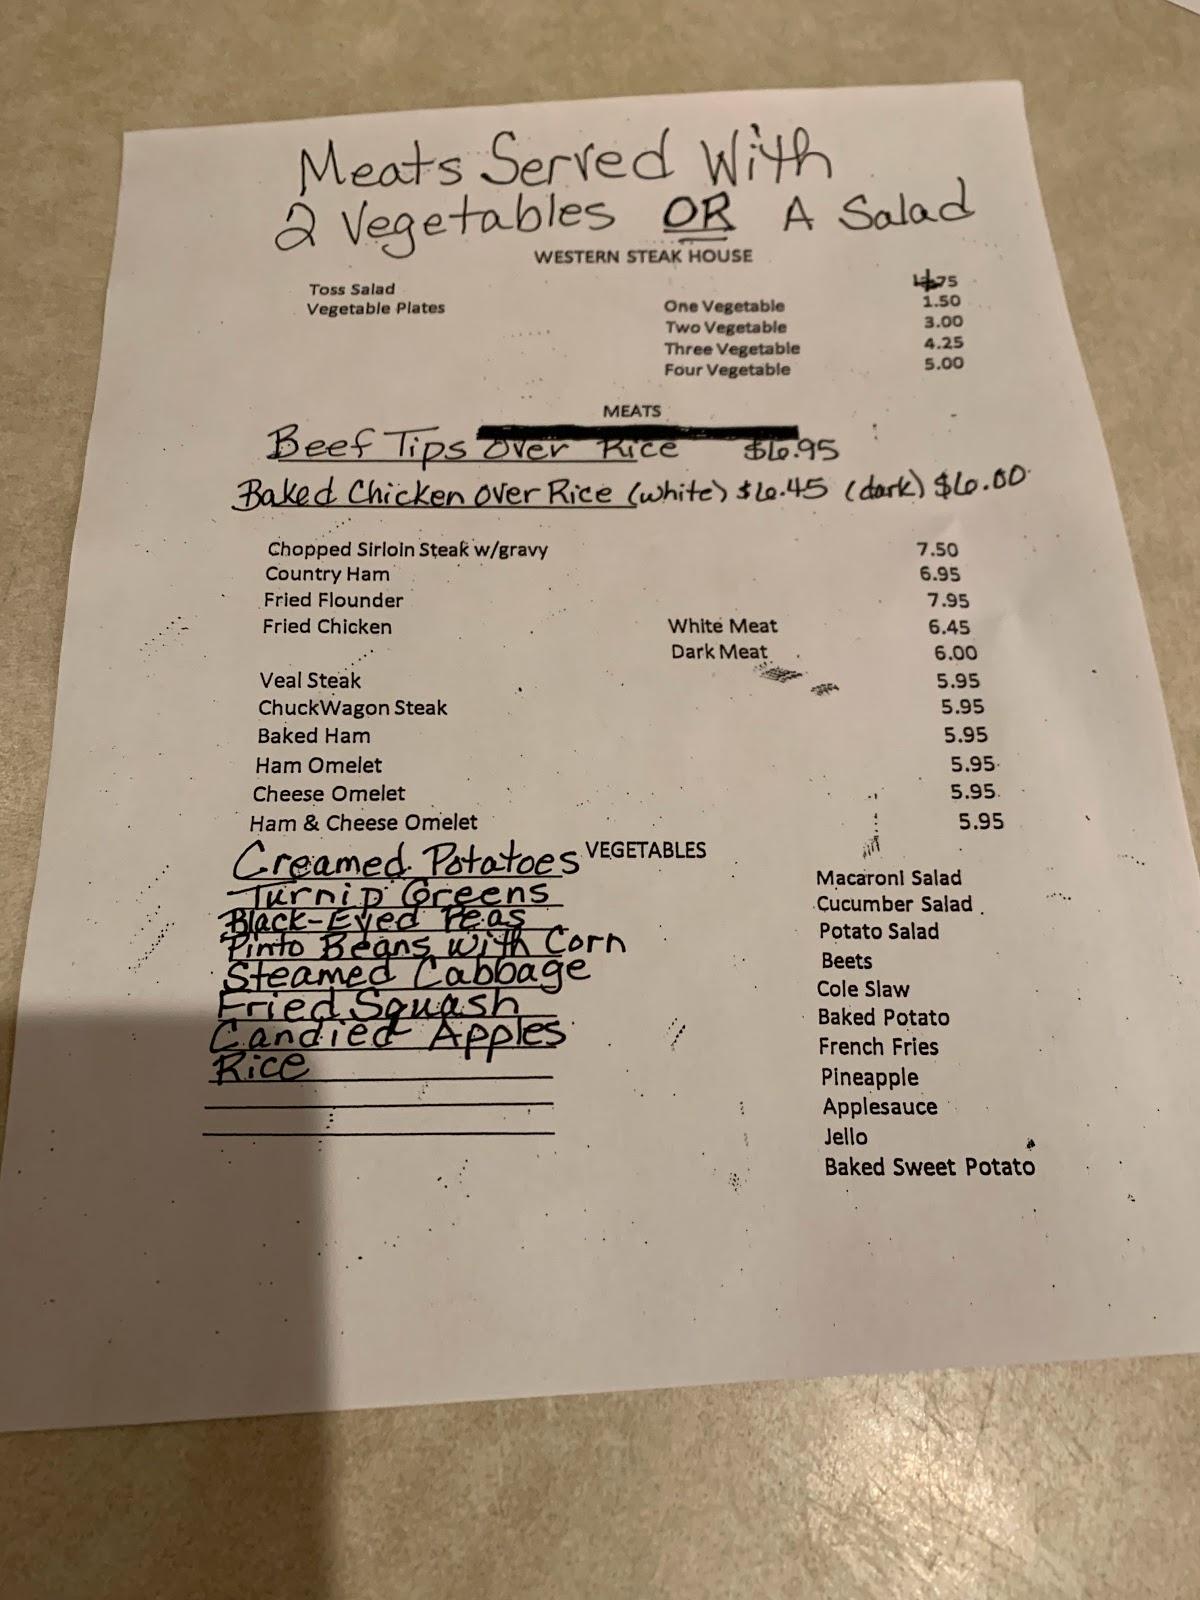 Meats Served With
2 Vegetables OR A Salad
WESTERN STEAK HOUSE
Toss Salad
Vegetable Plates One Vegetable 1.50
Two Vegetable 3.00
Three Vegetable 4.25
Four Vegetable 5.00
MEATS
Beef Tips Over Rice $6.95
Baked Chicken over Rice (white) $6.45 (dark) $6.00
Chopped Sirloin Steak w/gravy 7.50
Country Ham 6.95
Fried Flounder 7.95
Fried Chicken White Meat 6.45
Dark Meat 6.00
Veal Steak 5.95
ChuckWagon Steak 5.95
Baked Ham 5.95
Ham Omelet 5.95
Cheese Omelet 5.95
Ham & Cheese Omelet 5.95
VEGETABLES
Creamed Potatoes
Turnip Greens
Black-Eyed Peas
Pinto Beans with Corn
Steamed Cabbage
Fried Squash
Candied Apples
Rice
Macaroni Salad
Cucumber Salad
Potato Salad
Beets
Cole Slaw
Baked Potato
French Fries
Pineapple
Applesauce
Jello
Baked Sweet Potato